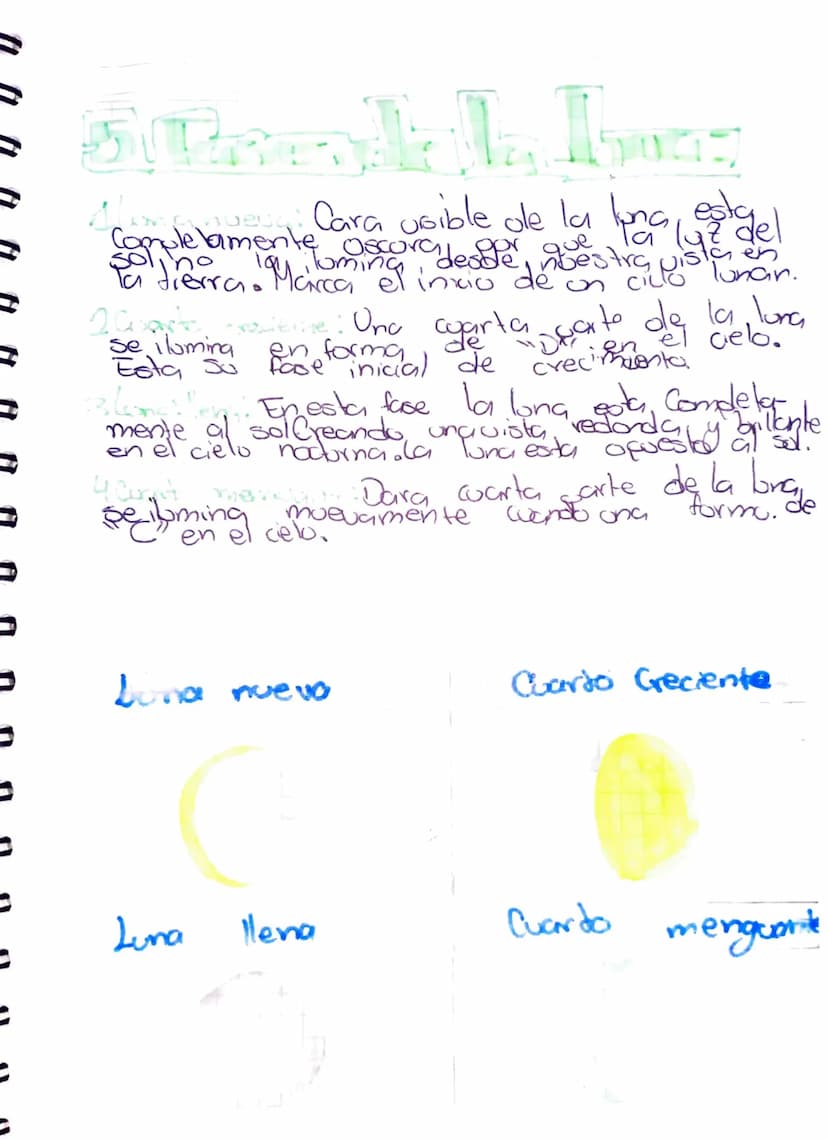 5 Fases de la luna
1 luna nueva: Cara visible de la luna, esta
Completamente oscura, por que la luz del
sol, no la ilumina desde, nuestra vista en
la tierra. Marca el inicio de un ciclo lunar.
2 Cuarto creciente: Una cuarta parte de la luna
se ilumina en forma de "D", en el cielo.
Esta su fase inicial de crecimiento.
En esta fase la luna esta Completa-
mente al sol Creando una vista redonda, y brillante
en el cielo nocturna. La luna esta opuesto al sol.
4 Cuart menguan: cuarta parte de la luna,
se ilumina nuevamente cuando una forma. de
"C" en el cielo.
Luna nueva
Cuarto Creciente
Luna llena
Cuarto menguante